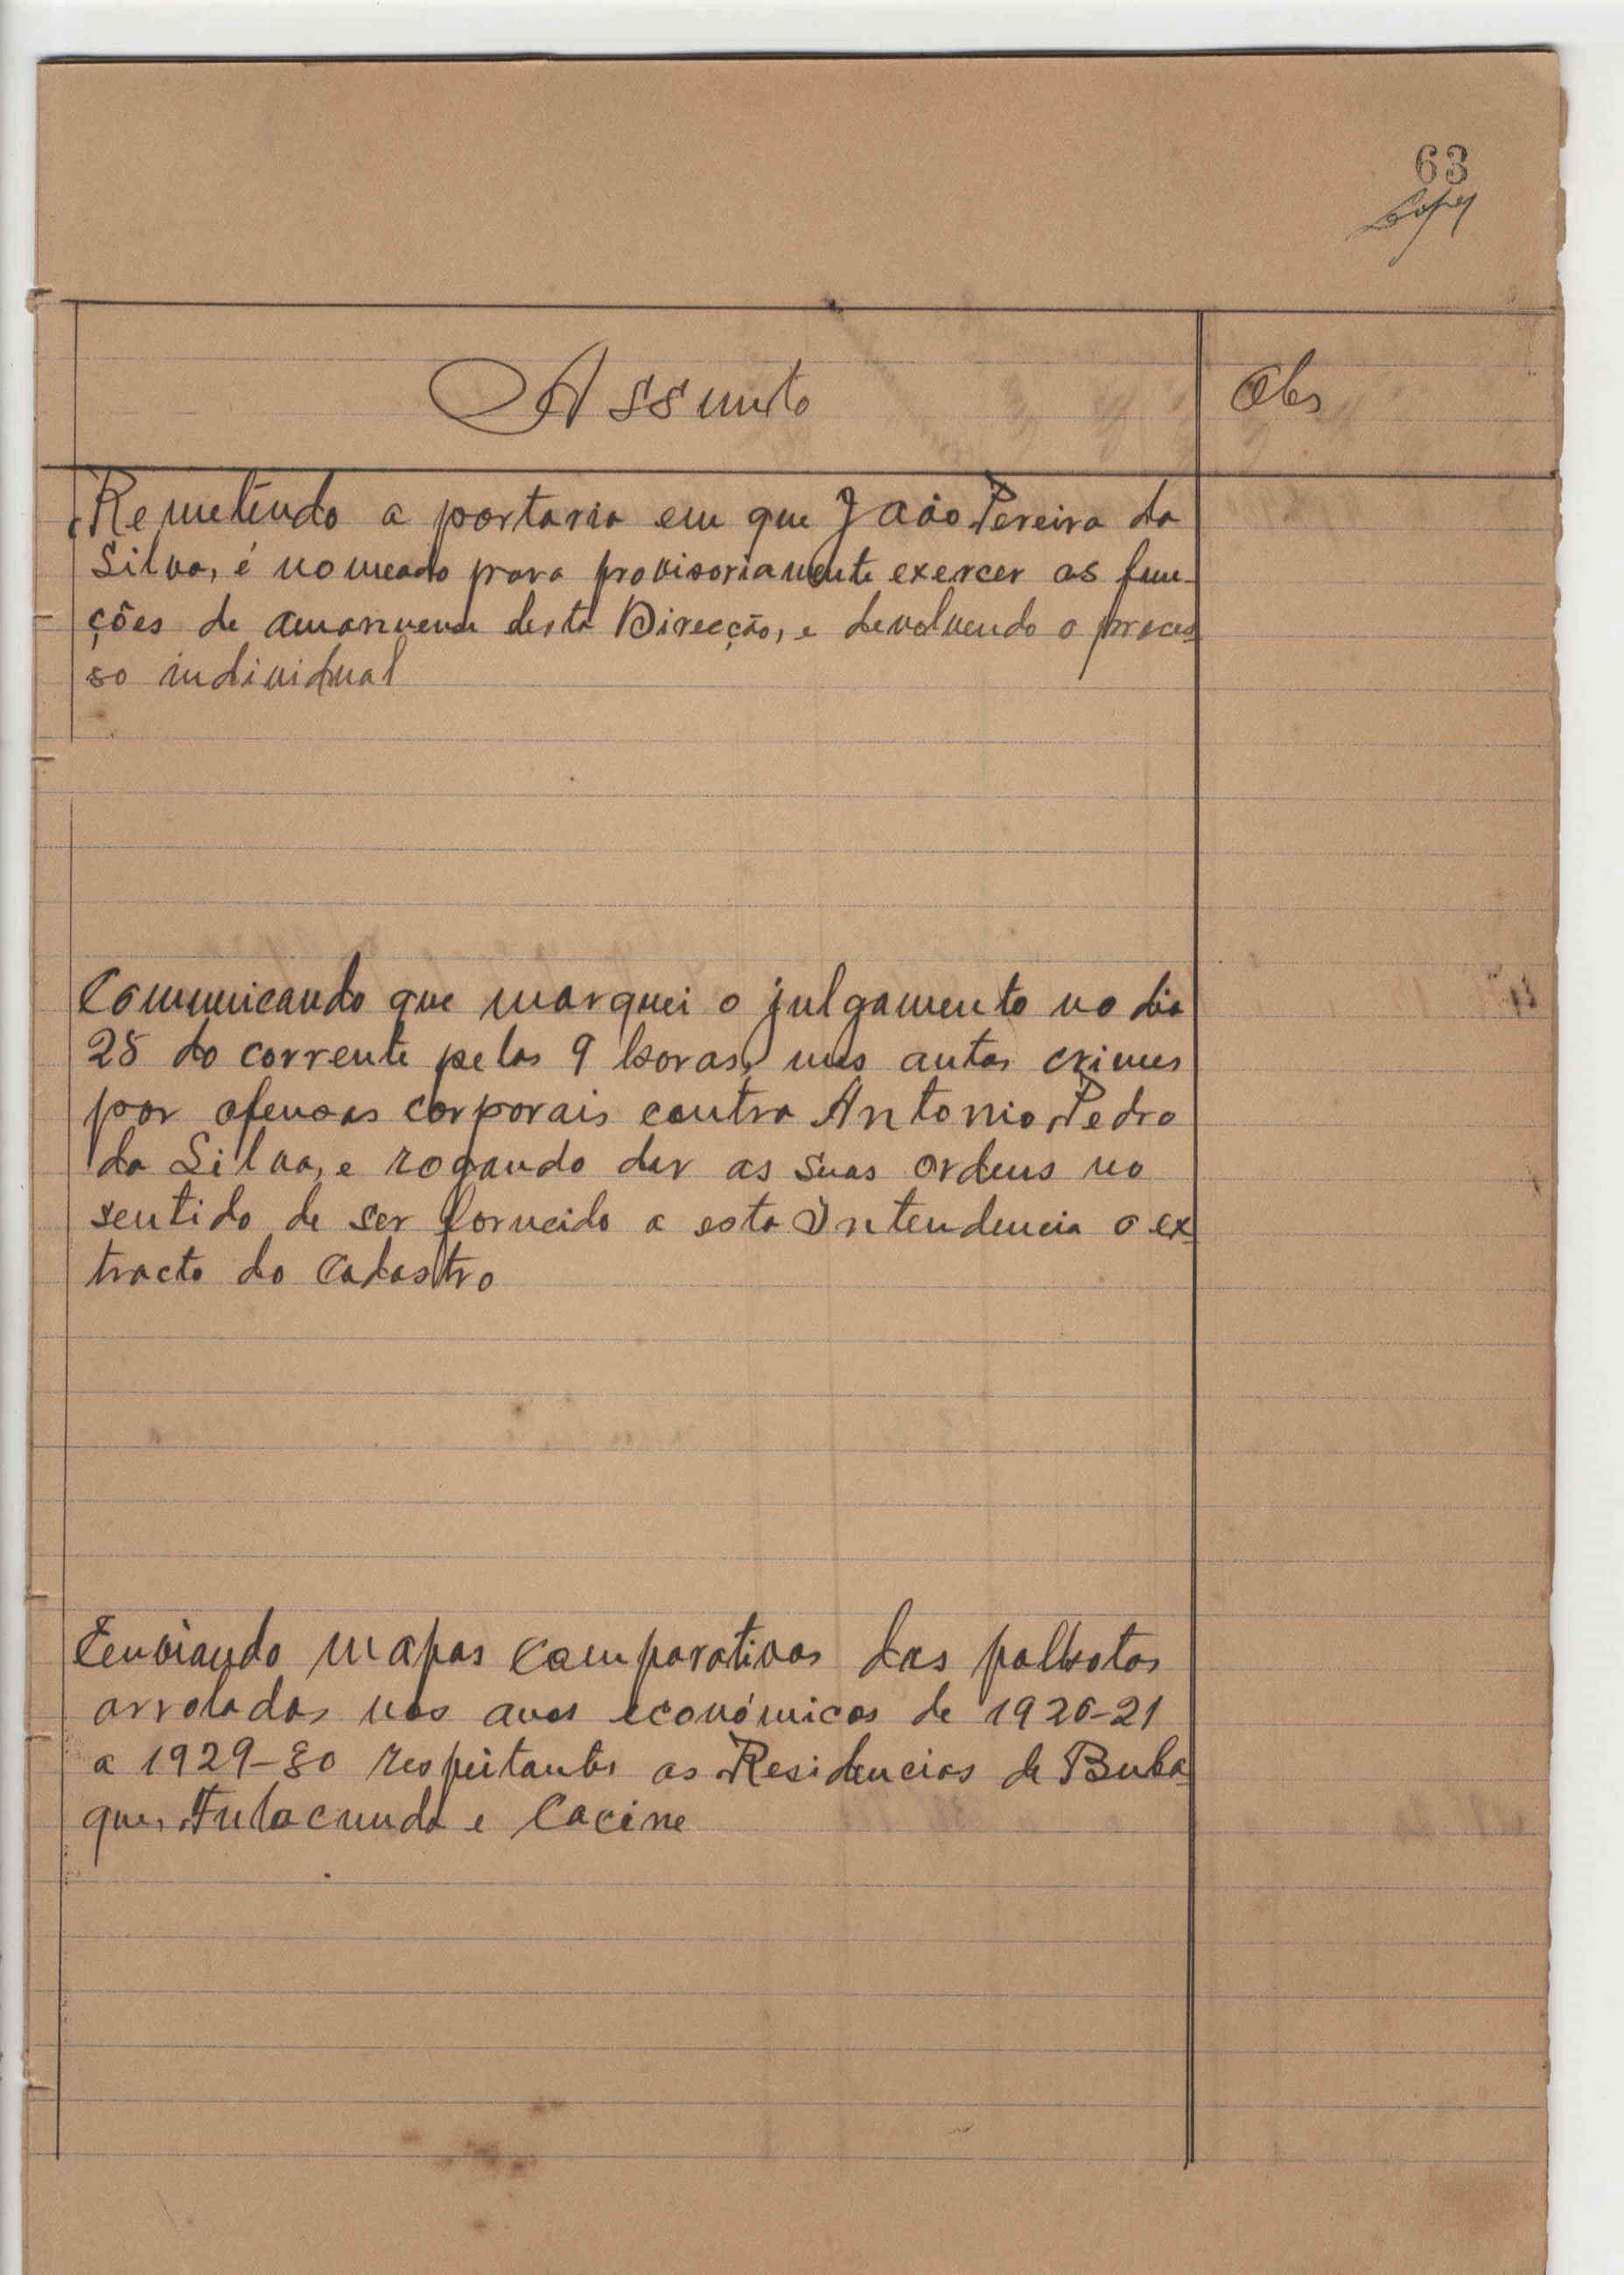 63
Assunto
Obs
Remetendo a portaria em que João Pereira da
Silva, é nomeado para provisoriamente exercer as fun-
ções de amanuense desta Direcção, e devolvendo o proces-
so individual
Comunicando que marquei o julgamento no dia
28 do corrente pelas 9 horas, nos autos crimes
por ofensas corporais contra Antonio Pedro
da Silva, e rogando dar as suas ordens no
sentido de ser fornecido a esta Intendencia o ex-
tracto do cadastro
Enviando mapas comparativos das palhotas
arroladas nos anos económicos de 1920-21
a 1929-30 respeitantes as Residencias de Buba
que, Fulacunda e Cacine